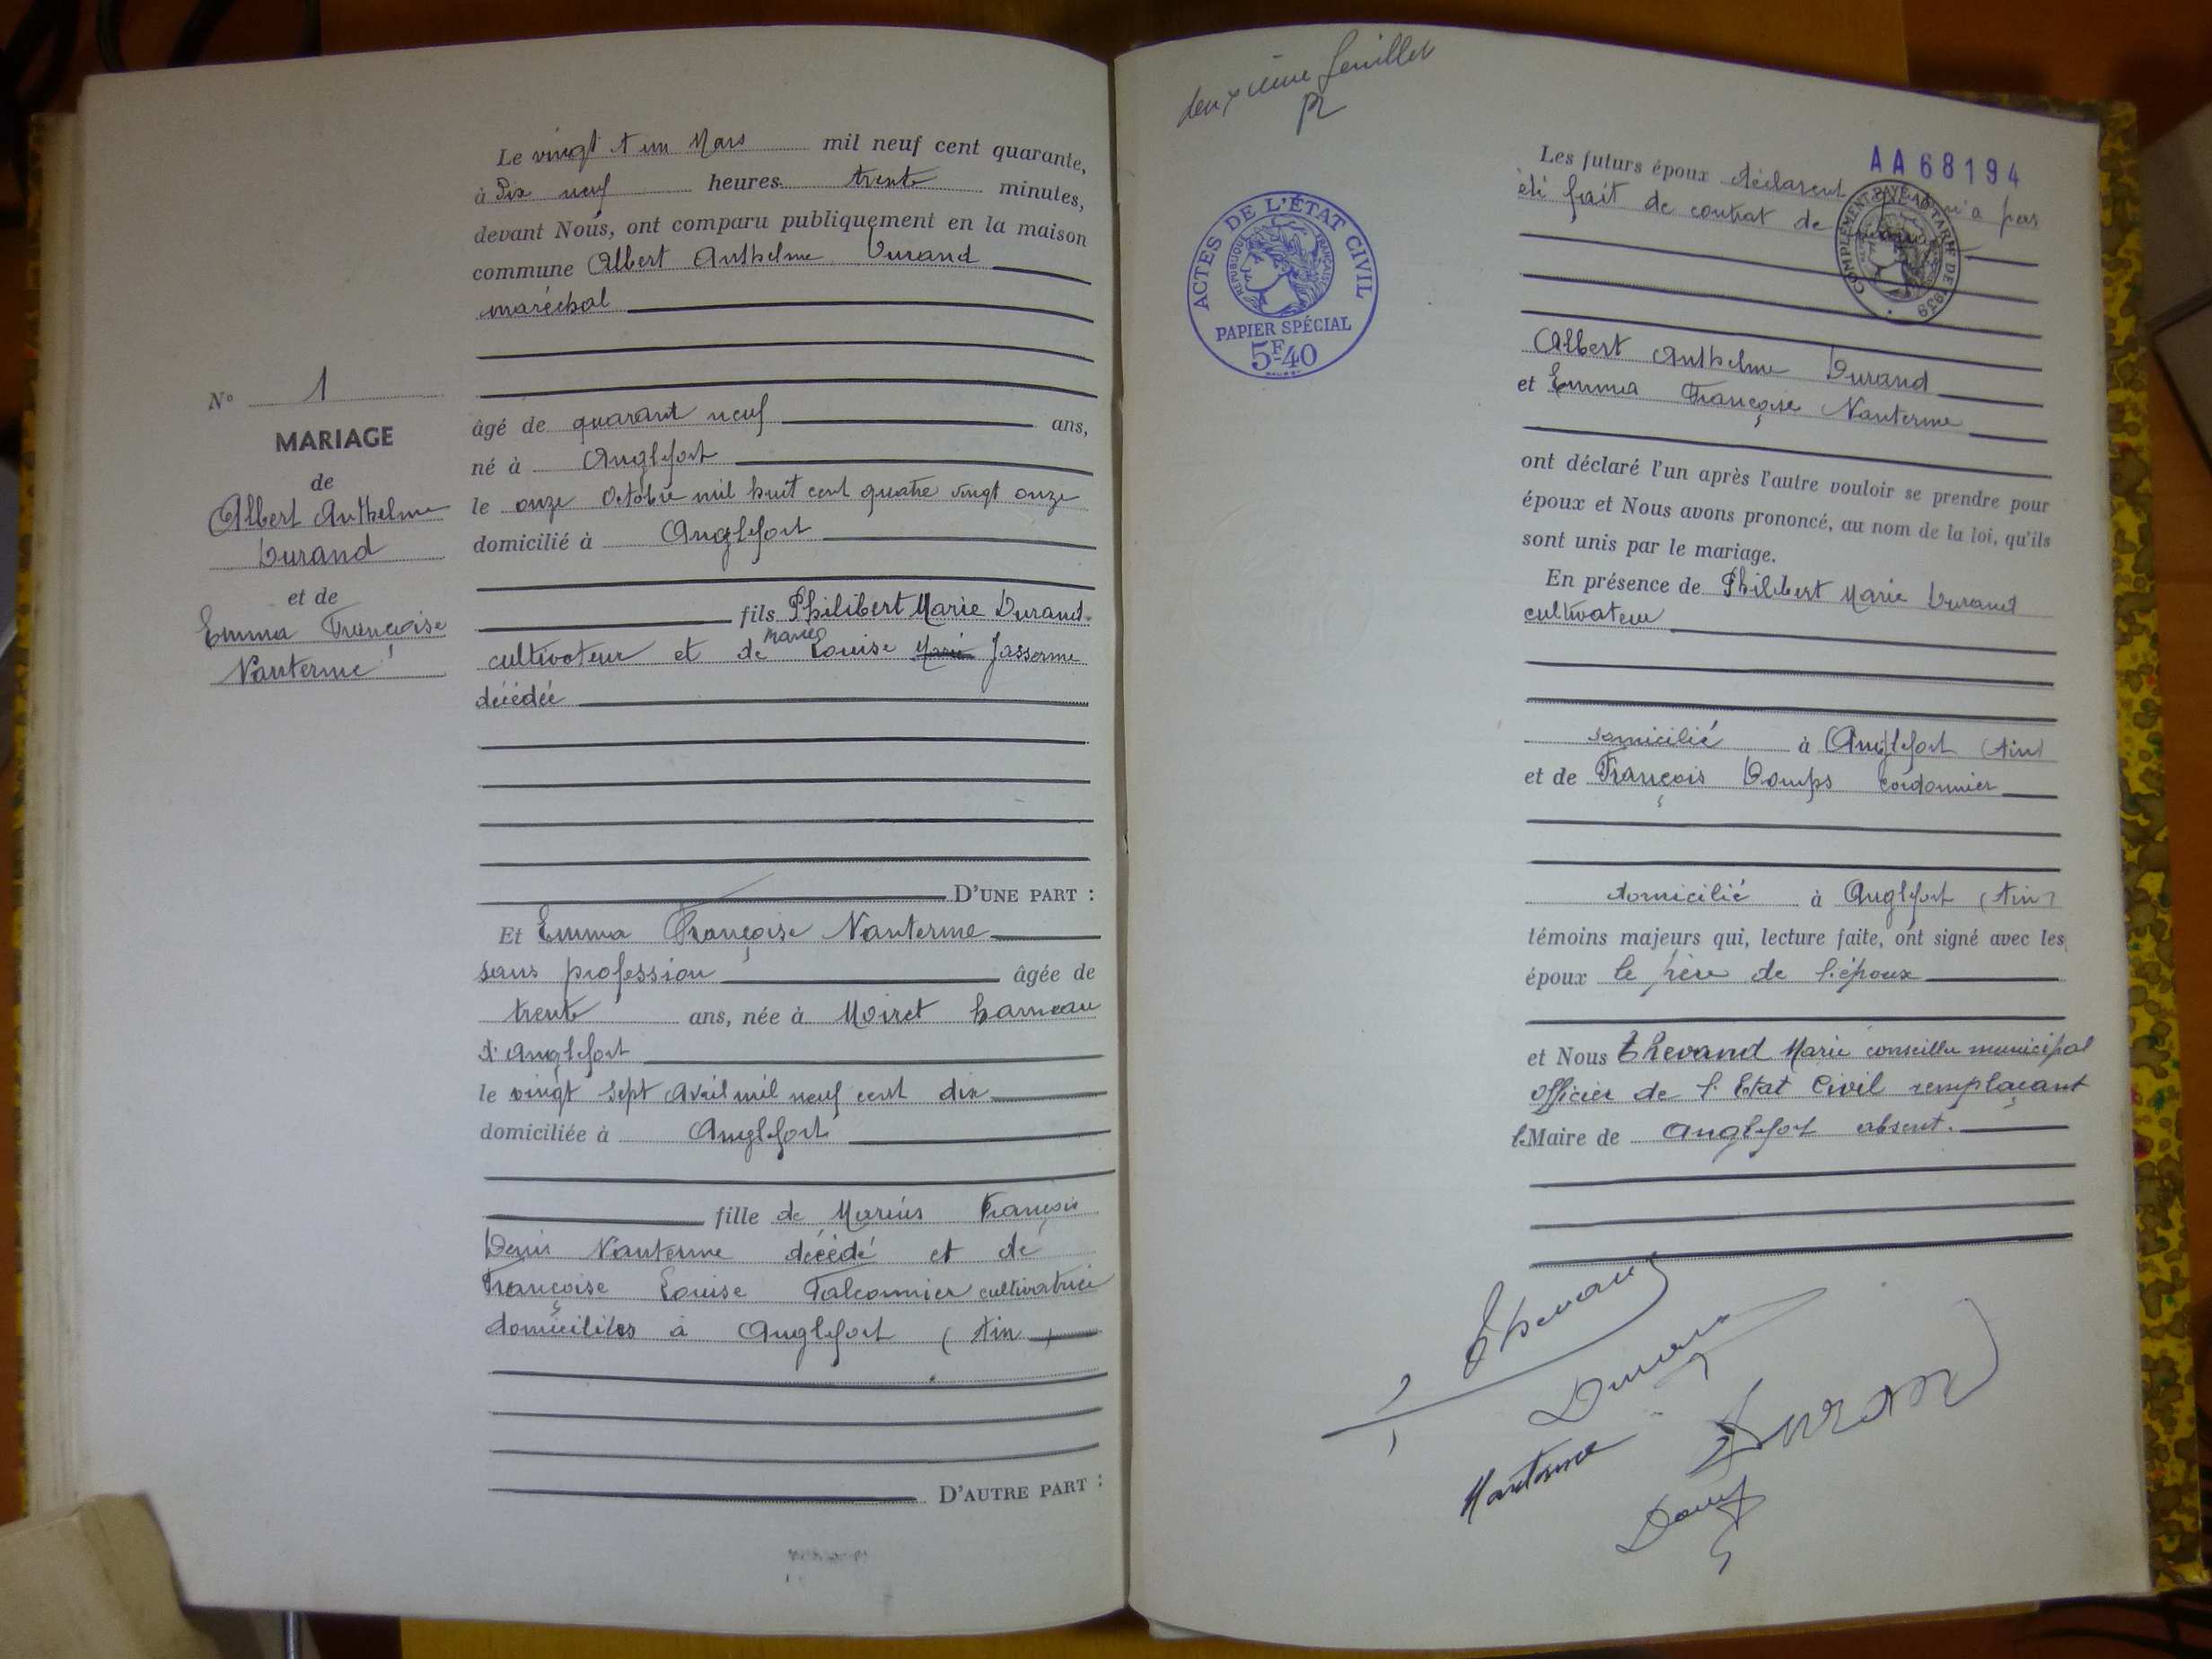 Le vingt et un Mars mil neuf cent quarante,
à Dix neuf heures trente minutes,
devant Nous, ont comparu publiquement en la maison
commune Albert Anthelme Durand
maréchal
N° 1
MARIAGE
de
Albert Anthelme
Durand
et de
Emma Françoise
Nanterme
âgé de quarant neuf ans,
né à Anglefort
le onze Octobre mil huit cent quatre vingt onze
domicilié à Anglefort
fils Philibert Marie Durand
cultivateur et de Marie Louise Marie Jasserme
décédée
D'UNE PART :
Et Emma Françoise Nanterme
sans profession âgée de
trente ans, née à Moiret hameau
d'Anglefort
le vingt sept Avril mil neuf cent dix
domiciliée à Anglefort
fille de Marius François
Denis Nanterme décédé et de
Françoise Louise Falconnier cultivatrice
domiciliés à Anglefort (Ain)
D'AUTRE PART :
deuxième feuillet
AA68194
ACTES DE L'ÉTAT CIVIL
RÉPUBLIQUE FRANÇAISE
PAPIER SPÉCIAL
5F40
COMPLÉMENT PAYÉ AU TARIF DE 1939
Les futurs époux déclarent qu'il n'a pas
été fait de contrat de mariage
Albert Anthelme Durand
et Emma Françoise Nanterme
ont déclaré l'un après l'autre vouloir se prendre pour
époux et Nous avons prononcé, au nom de la loi, qu'ils
sont unis par le mariage.
En présence de Philibert Marie Durand
cultivateur
domicilié à Anglefort (Ain)
et de François Domps cordonnier
domicilié à Anglefort (Ain)
témoins majeurs qui, lecture faite, ont signé avec les
époux le père de l'époux
et Nous Thevand Marie conseiller municipal
officier de l'Etat Civil remplaçant
le Maire de Anglefort absent.
Thevand
Durand
Nanterme
Durand